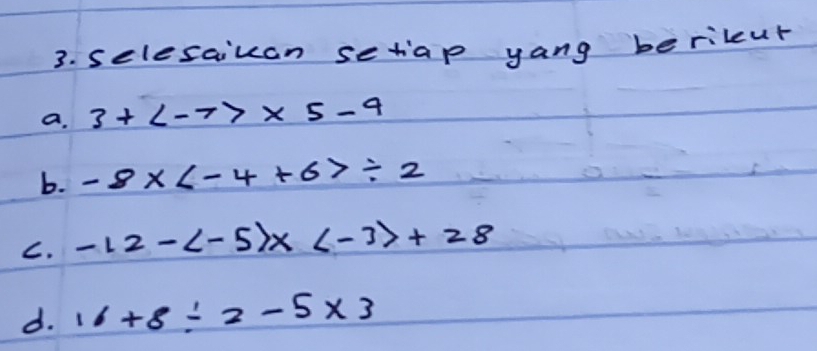 3. Selesaikan setiap yang berikut
a. 3 + <-7> × 5 - 9
b. -8 × <-4 + 6> ÷ 2
c. -12 - <-5)× <-3> + 28
d. 16 + 8 ÷ 2 - 5 × 3